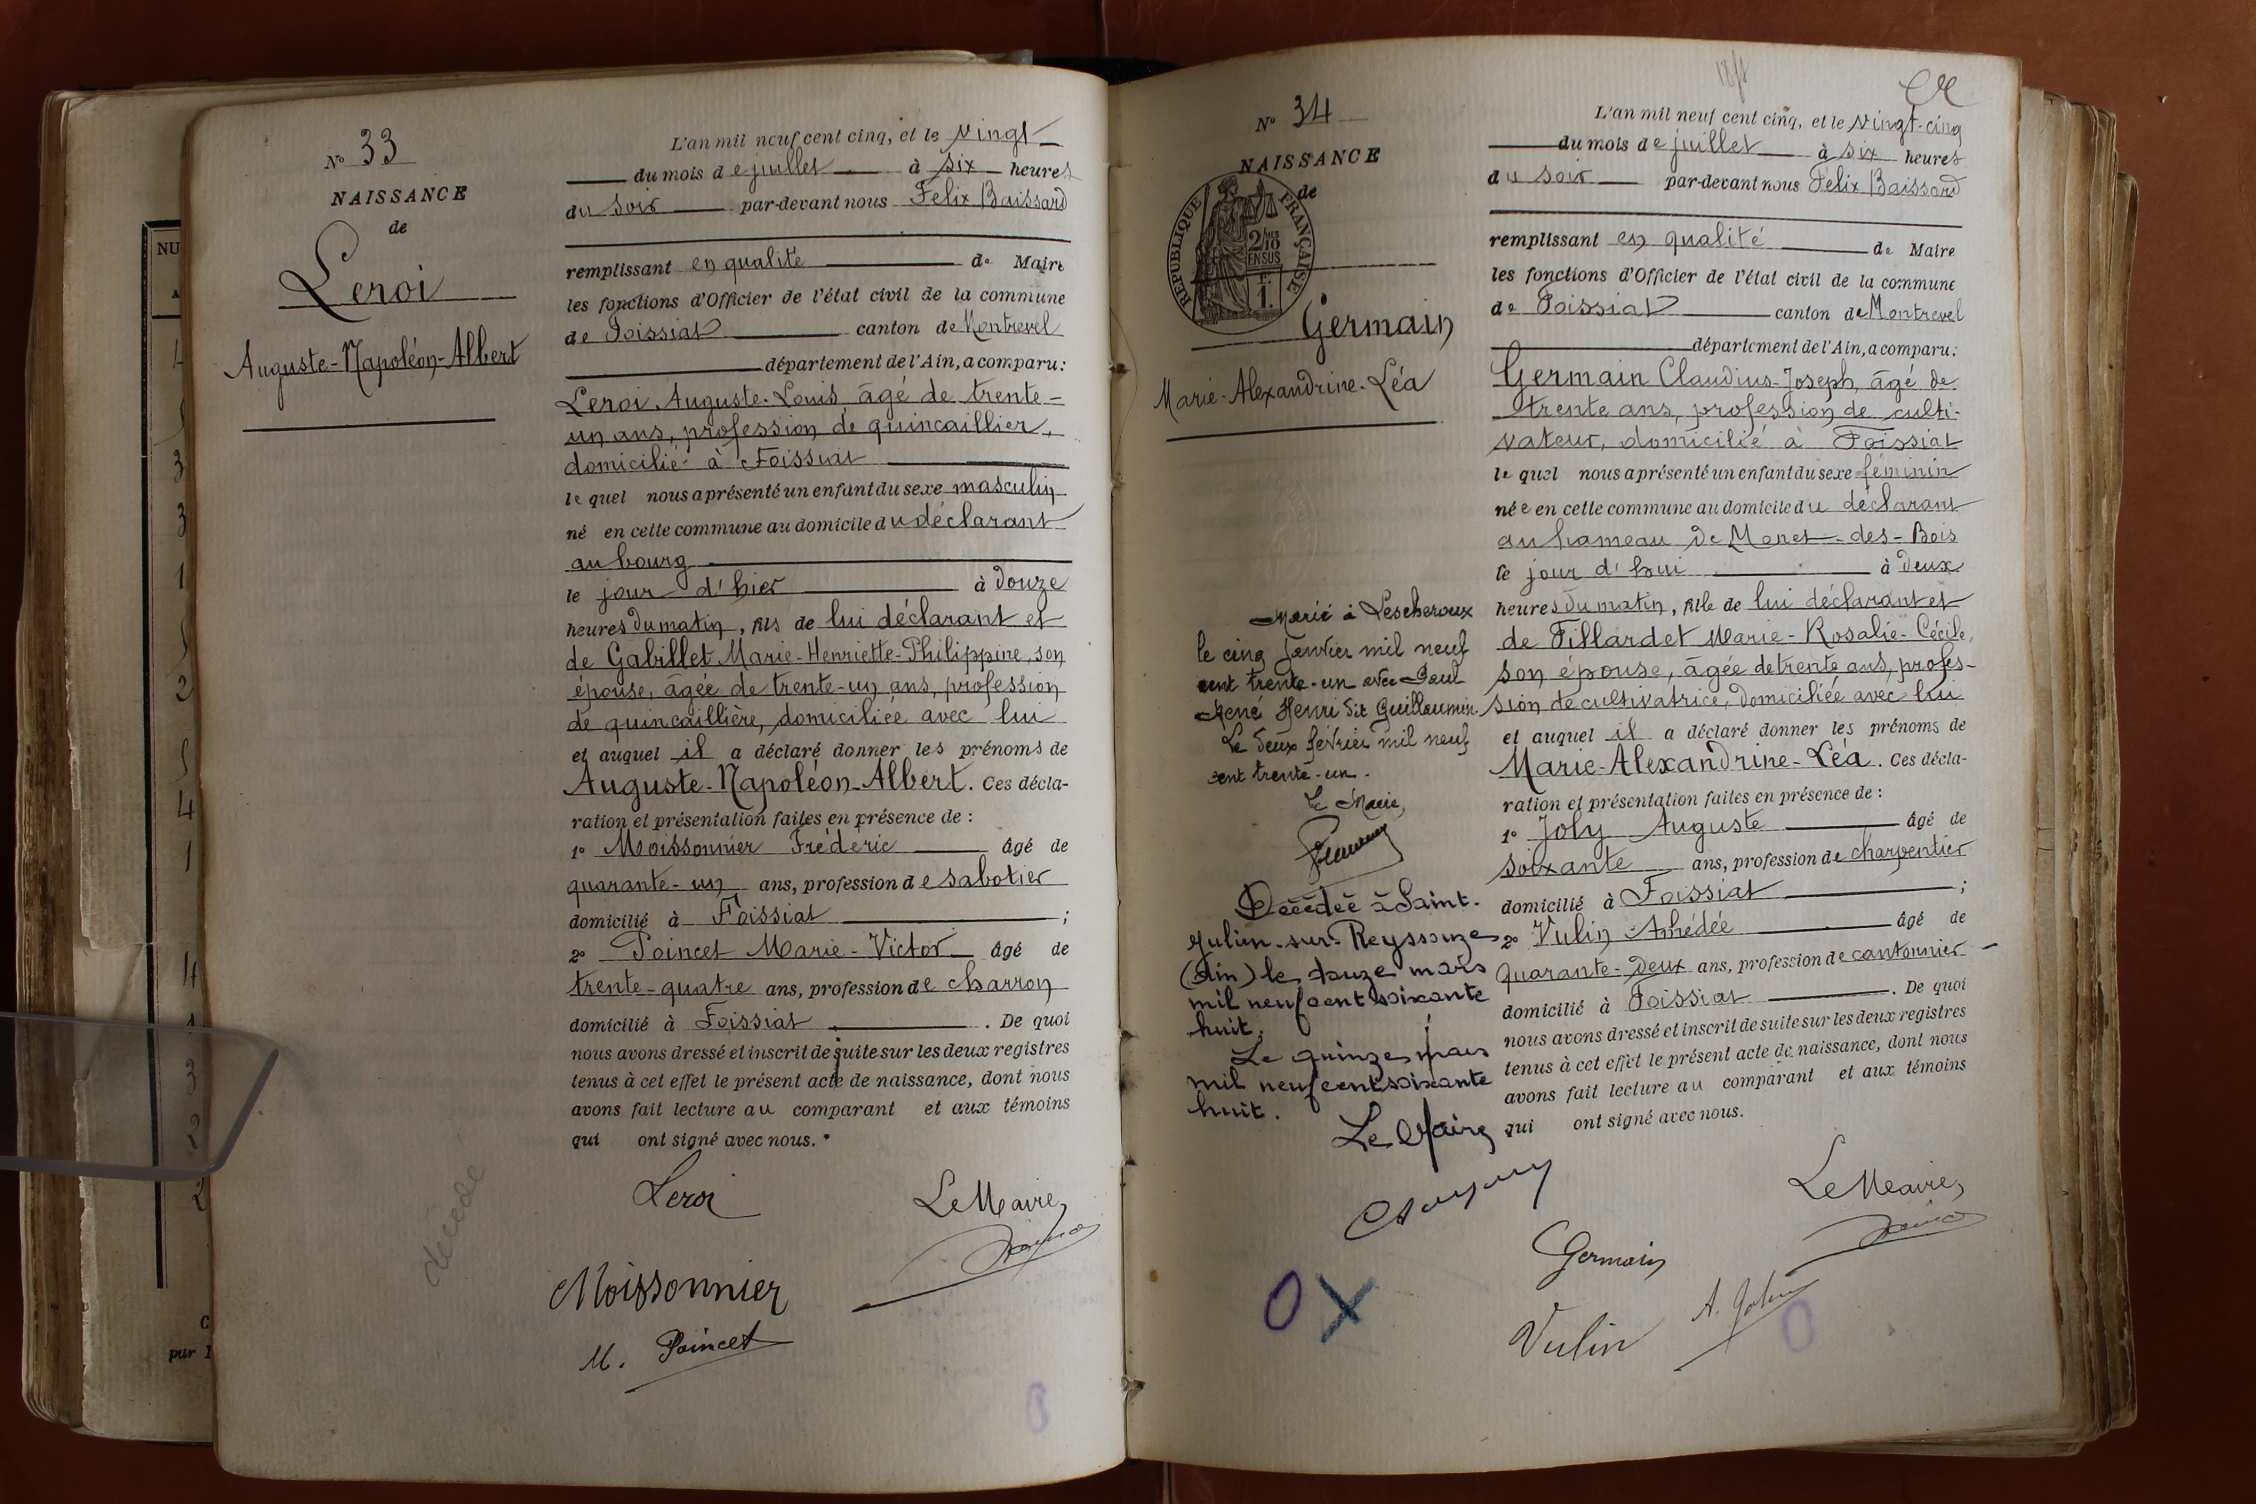 NU
4
3
3
1
2
4
1
4
3
2
2
C
par
N° 33
NAISSANCE
de
Leroi
Auguste-Napoléon-Albert
décédé
L'an mil neuf cent cinq, et le vingt
du mois de juillet à six heures
du soir par-devant nous Felix Baissard
remplissant en qualité de Maire
les fonctions d'Officier de l'état civil de la commune
de Foissiat canton de Montrevel
département de l'Ain, a comparu:
Leroi Auguste-Louis âgé de trente-
un ans, profession de quincaillier,
domicilié à Foissiat
le quel nous a présenté un enfant du sexe masculin
né en cette commune au domicile du déclarant
au bourg
le jour d'hier à douze
heures du matin, fils de lui déclarant et
de Gabillet Marie-Henriette-Philippine, son
épouse, âgée de trente-un ans, profession
de quincaillière, domiciliée avec lui
et auquel il a déclaré donner les prénoms de
Auguste-Napoléon-Albert. Ces décla-
ration et présentation faites en présence de :
1° Moissonnier Fréderic âgé de
quarante-un ans, profession de sabotier
domicilié à Foissiat ;
2° Poincet Marie-Victor âgé de
trente-quatre ans, profession de charron
domicilié à Foissiat . De quoi
nous avons dressé et inscrit de suite sur les deux registres
tenus à cet effet le présent acte de naissance, dont nous
avons fait lecture au comparant et aux témoins
qui ont signé avec nous.
Leroi
Le Maire,
Moissonnier
M. Poincet
N° 34
NAISSANCE
de
RÉPUBLIQUE FRANÇAISE
2/10
EN SUS
1.
Germain
Marie-Alexandrine-Léa
Marié à Lescheroux
le cinq Janvier mil neuf
cent trente-un avec Paul
René Henri dit Guillaumin.
Le deux février mil neuf
cent trente-un.
Le Maire,
Décédée à Saint-
Julien-sur-Reyssouze
(Ain) le douze mars
mil neuf cent soixante
huit.
Le quinze mars
mil neuf cent soixante
huit.
Le Maire
L'an mil neuf cent cinq, et le vingt-cinq
du mois de juillet à six heures
du soir par-devant nous Felix Baissard
remplissant en qualité de Maire
les fonctions d'Officier de l'état civil de la commune
de Foissiat canton de Montrevel
département de l'Ain, a comparu:
Germain Claudius-Joseph, âgé de
trente ans, profession de culti-
vateur, domicilié à Foissiat
le quel nous a présenté un enfant du sexe féminin
née en cette commune au domicile du déclarant
au hameau de Monet-des-Bois
le jour d'hui à deux
heures du matin, fille de lui déclarant et
de Fillardet Marie-Rosalie-Cécile,
son épouse, âgée de trente ans, profes-
sion de cultivatrice, domiciliée avec lui
et auquel il a déclaré donner les prénoms de
Marie-Alexandrine-Léa. Ces décla-
ration et présentation faites en présence de :
1° Joly Auguste âgé de
soixante ans, profession de charpentier
domicilié à Foissiat ;
2° Vulin Amédée âgé de
quarante-deux ans, profession de cantonnier
domicilié à Foissiat . De quoi
nous avons dressé et inscrit de suite sur les deux registres
tenus à cet effet le présent acte de naissance, dont nous
avons fait lecture au comparant et aux témoins
qui ont signé avec nous.
Le Maire,
Germain
Vulin